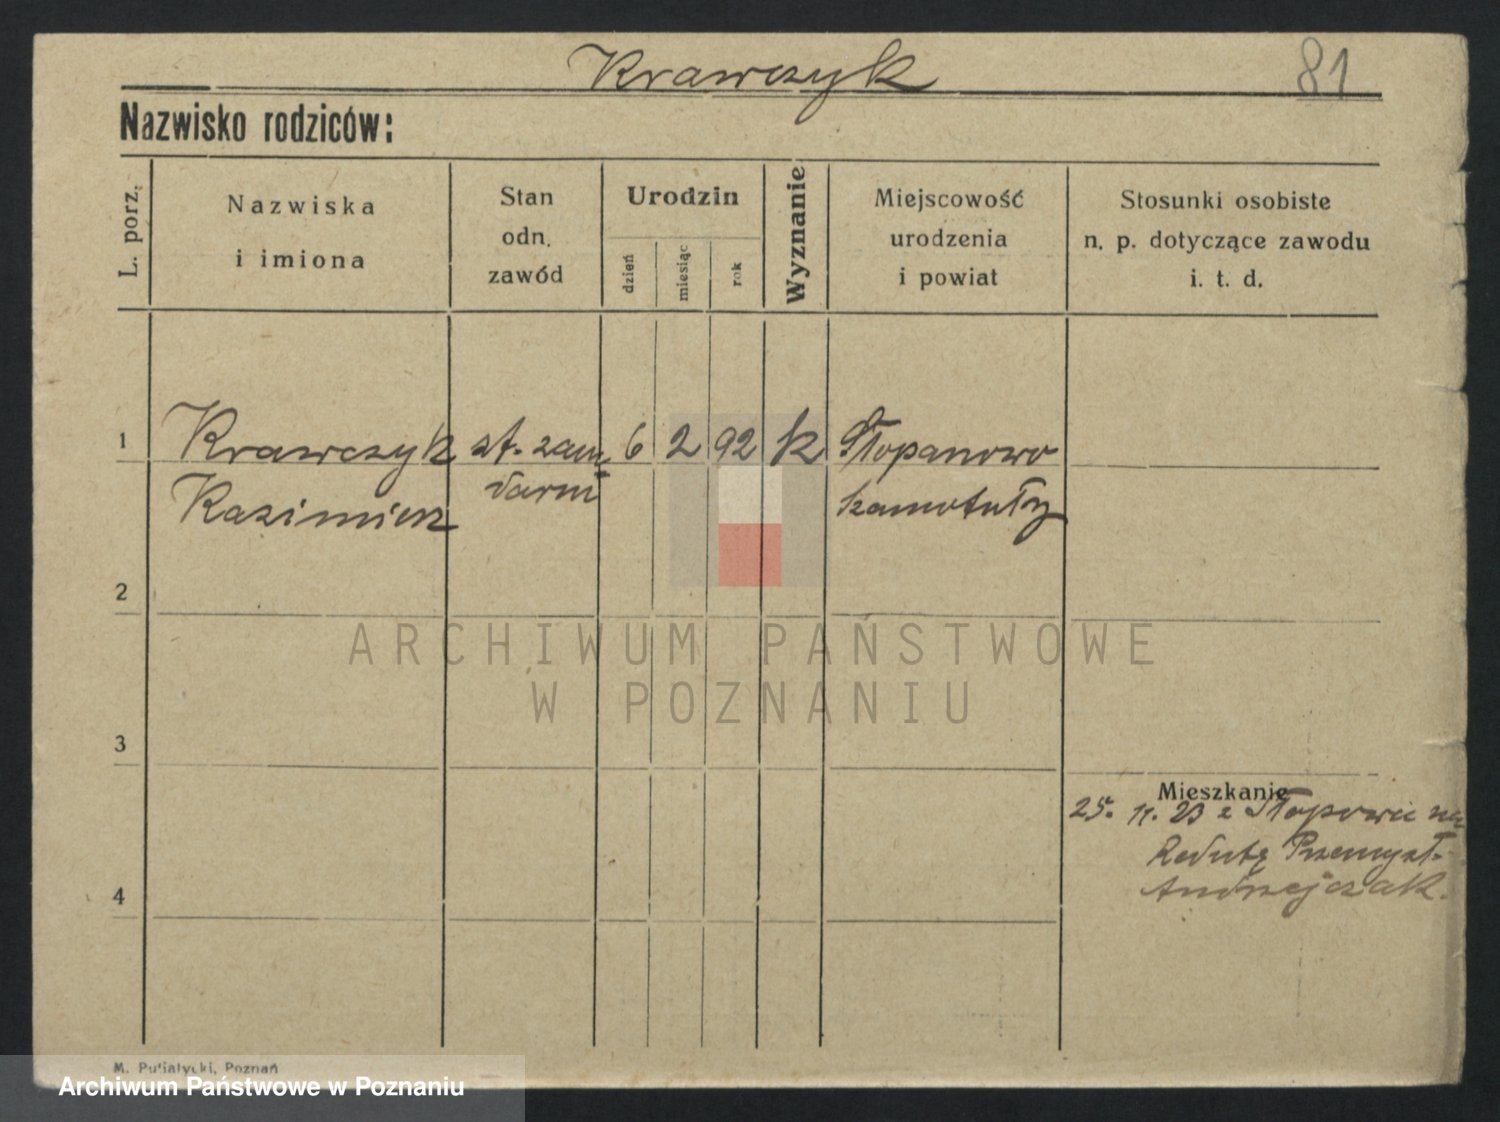 Krawczyk
81
Nazwisko rodziców:
L. porz.
Nazwiska
i imiona
Stan
odn.
zawód
Urodzin
dzień
miesiąc
rok
Wyznanie
Miejscowość
urodzenia
i powiat
Stosunki osobiste
n. p. dotyczące zawodu
i. t. d.
1
Krawczyk
st. żan
6
2
92
k
Stopanowo
darm
Kazimierz
Szamotuły
2
ARCHIWUM PAŃSTWOWE
W POZNANIU
3
Mieszkanie
25. 11. 23 z
na
Redutę Przemysł.
Andrzejczak.
4
M. Putiatycki, Poznań
Archiwum Państwowe w Poznaniu